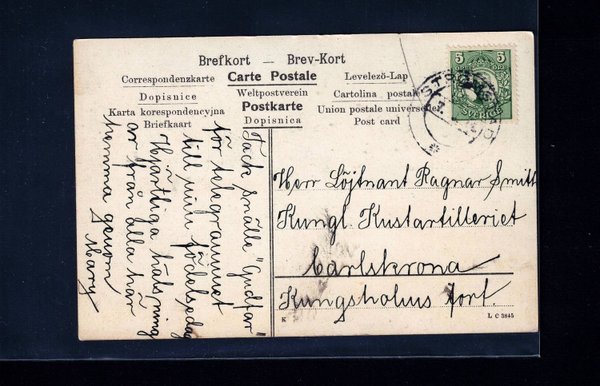 Brefkort — Brev-Kort
Correspondenzkarte Carte Postale Levelező-Lap
Dopisnice Weltpostverein Cartolina postale
Karta korespondencyjna Postkarte Union postale universelle
Briefkaart Dopisnica Post card
5 5
SVERIGE
Tack snälle "Gudfar"
för telegrammet
till min födelsedag
Hjärtliga hälsning
ar från alla här
hemma genom
Mary
Herr Löjtnant Ragnar Smitt
Kungl. Kustartilleriet
Carlskrona
Kungsholms fort.
K L C 3845